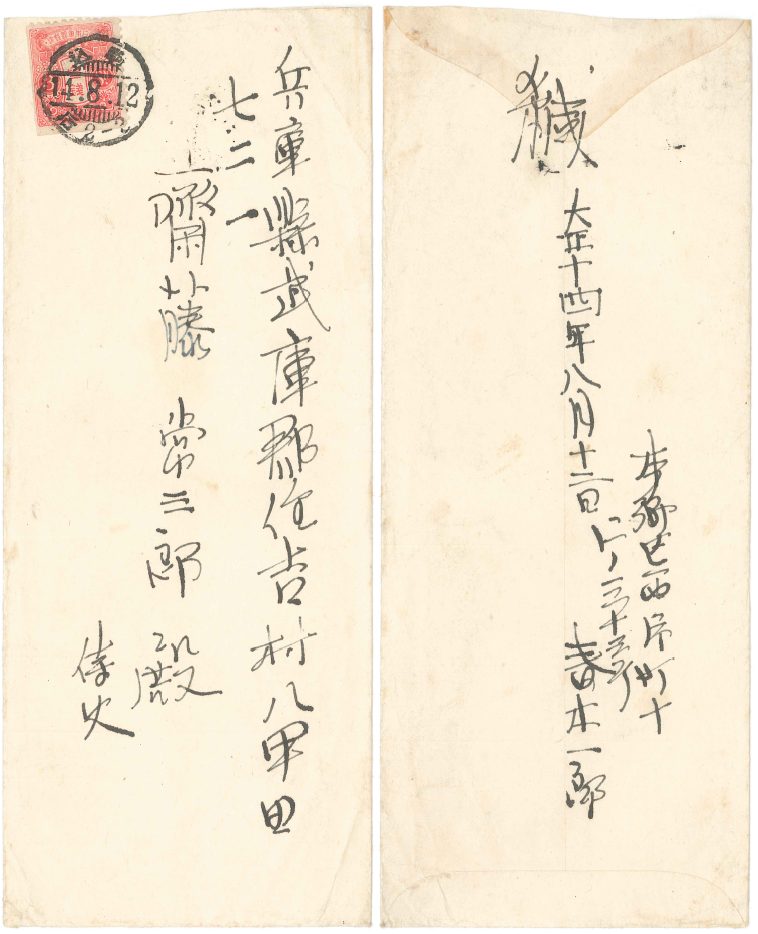 兵庫縣武庫郡住吉村八甲田
七二一
齋藤常三郎殿
侍史
14.8.12
緘
大正十四年八月十二日
本郷区西片町十
春木一郎